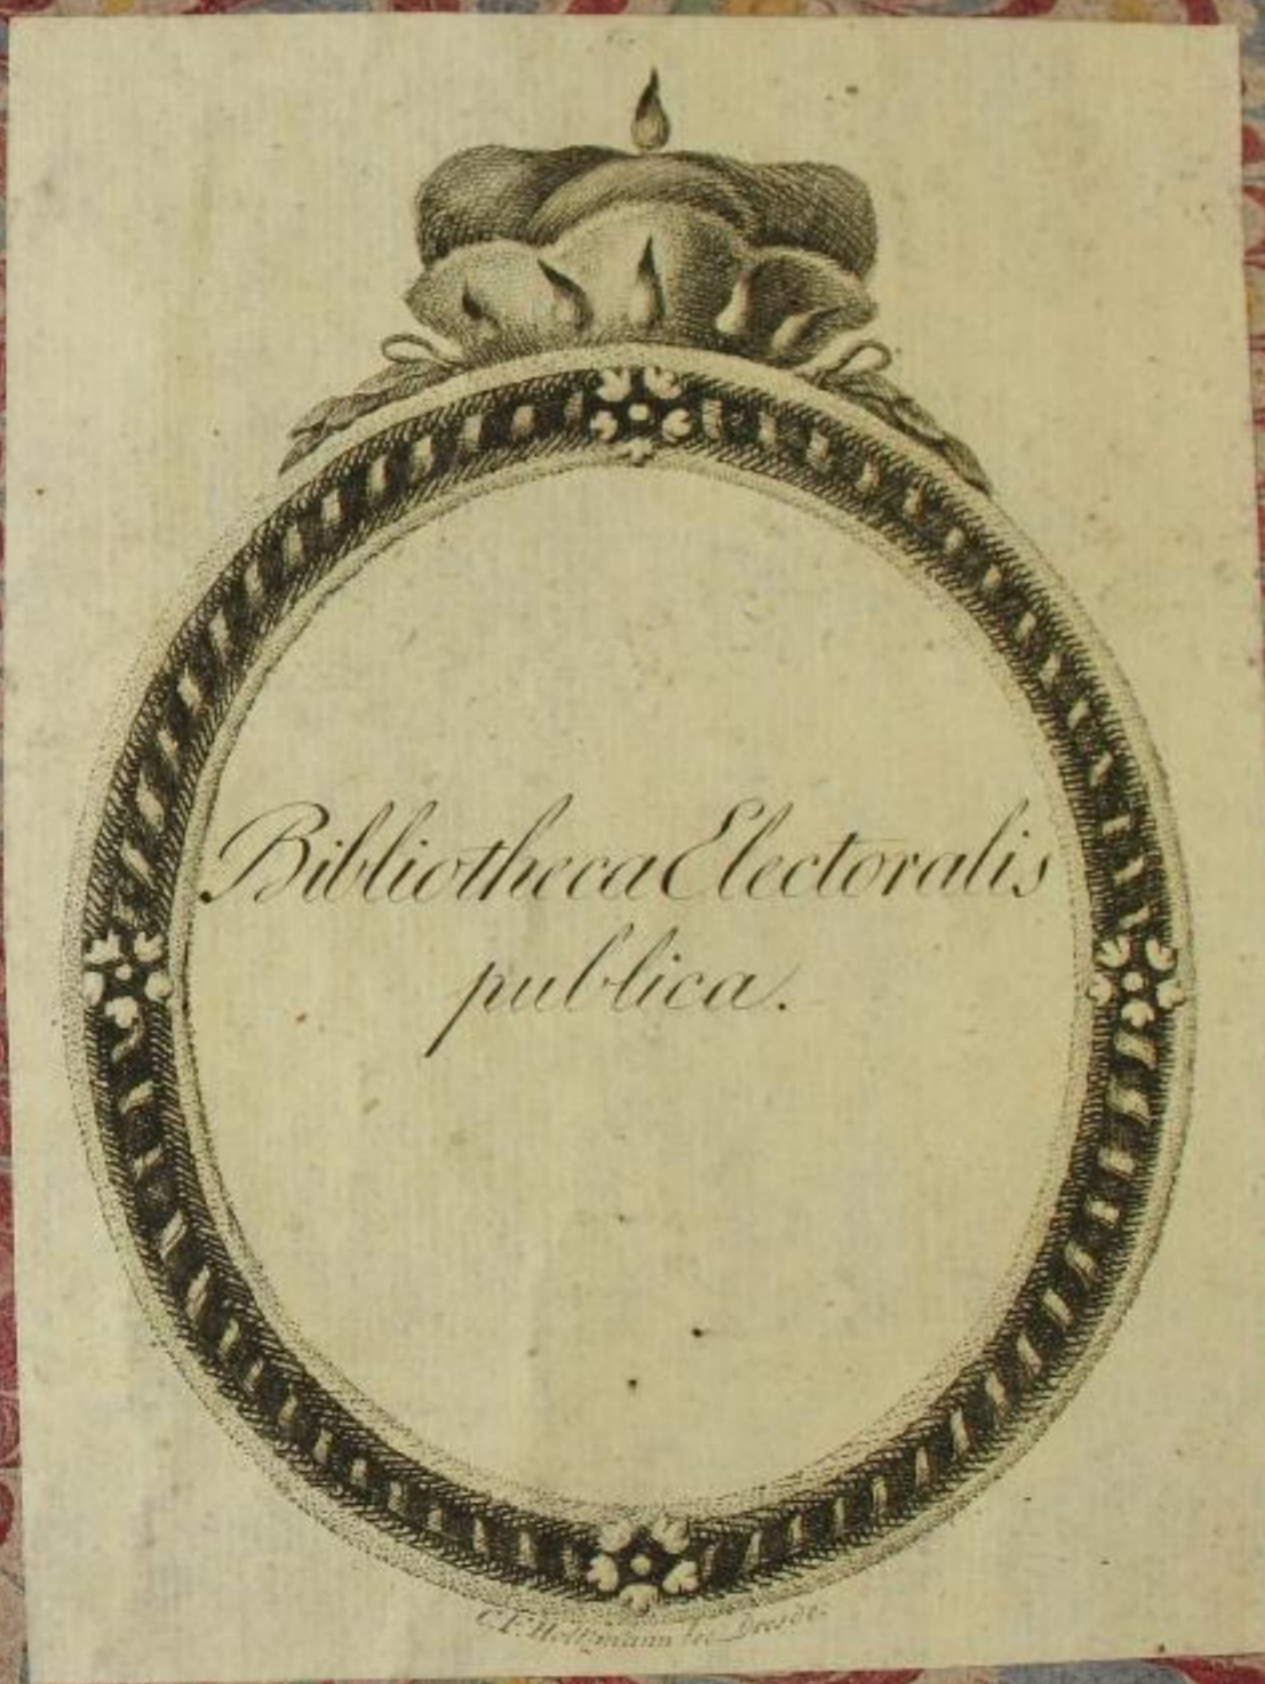 Bibliotheca Electoralis
publica.
C. F. Holtzmann fec. Dresde.